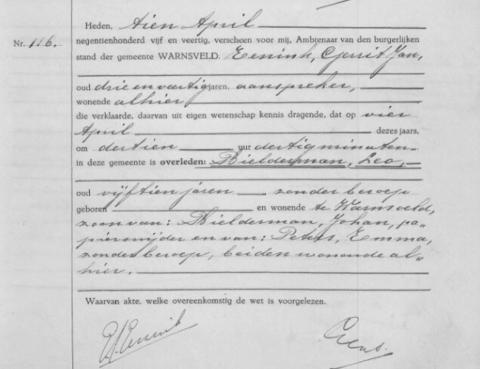 Heden, tien April
Nr. 116.
negentienhonderd vijf en veertig, verscheen voor mij, Ambtenaar van den burgerlijken
stand der gemeente WARNSVELD. Eenink, Gerrit Jan,
oud drie en veertig jaren, aanspreker,
wonende alhier
die verklaarde, daarvan uit eigen wetenschap kennis dragende, dat op vier
April dezes jaars,
om dertien uur dertig minuten
in deze gemeente is overleden: Bielderman, Leo,
oud vijftien jaren zonder beroep
geboren en wonende te Warnsveld,
zoon van: Bielderman, Johan, pa-
piersnijder en van: Peters, Emma,
zonder beroep, beiden wonende al-
hier.
Waarvan akte, welke overeenkomstig de wet is voorgelezen.